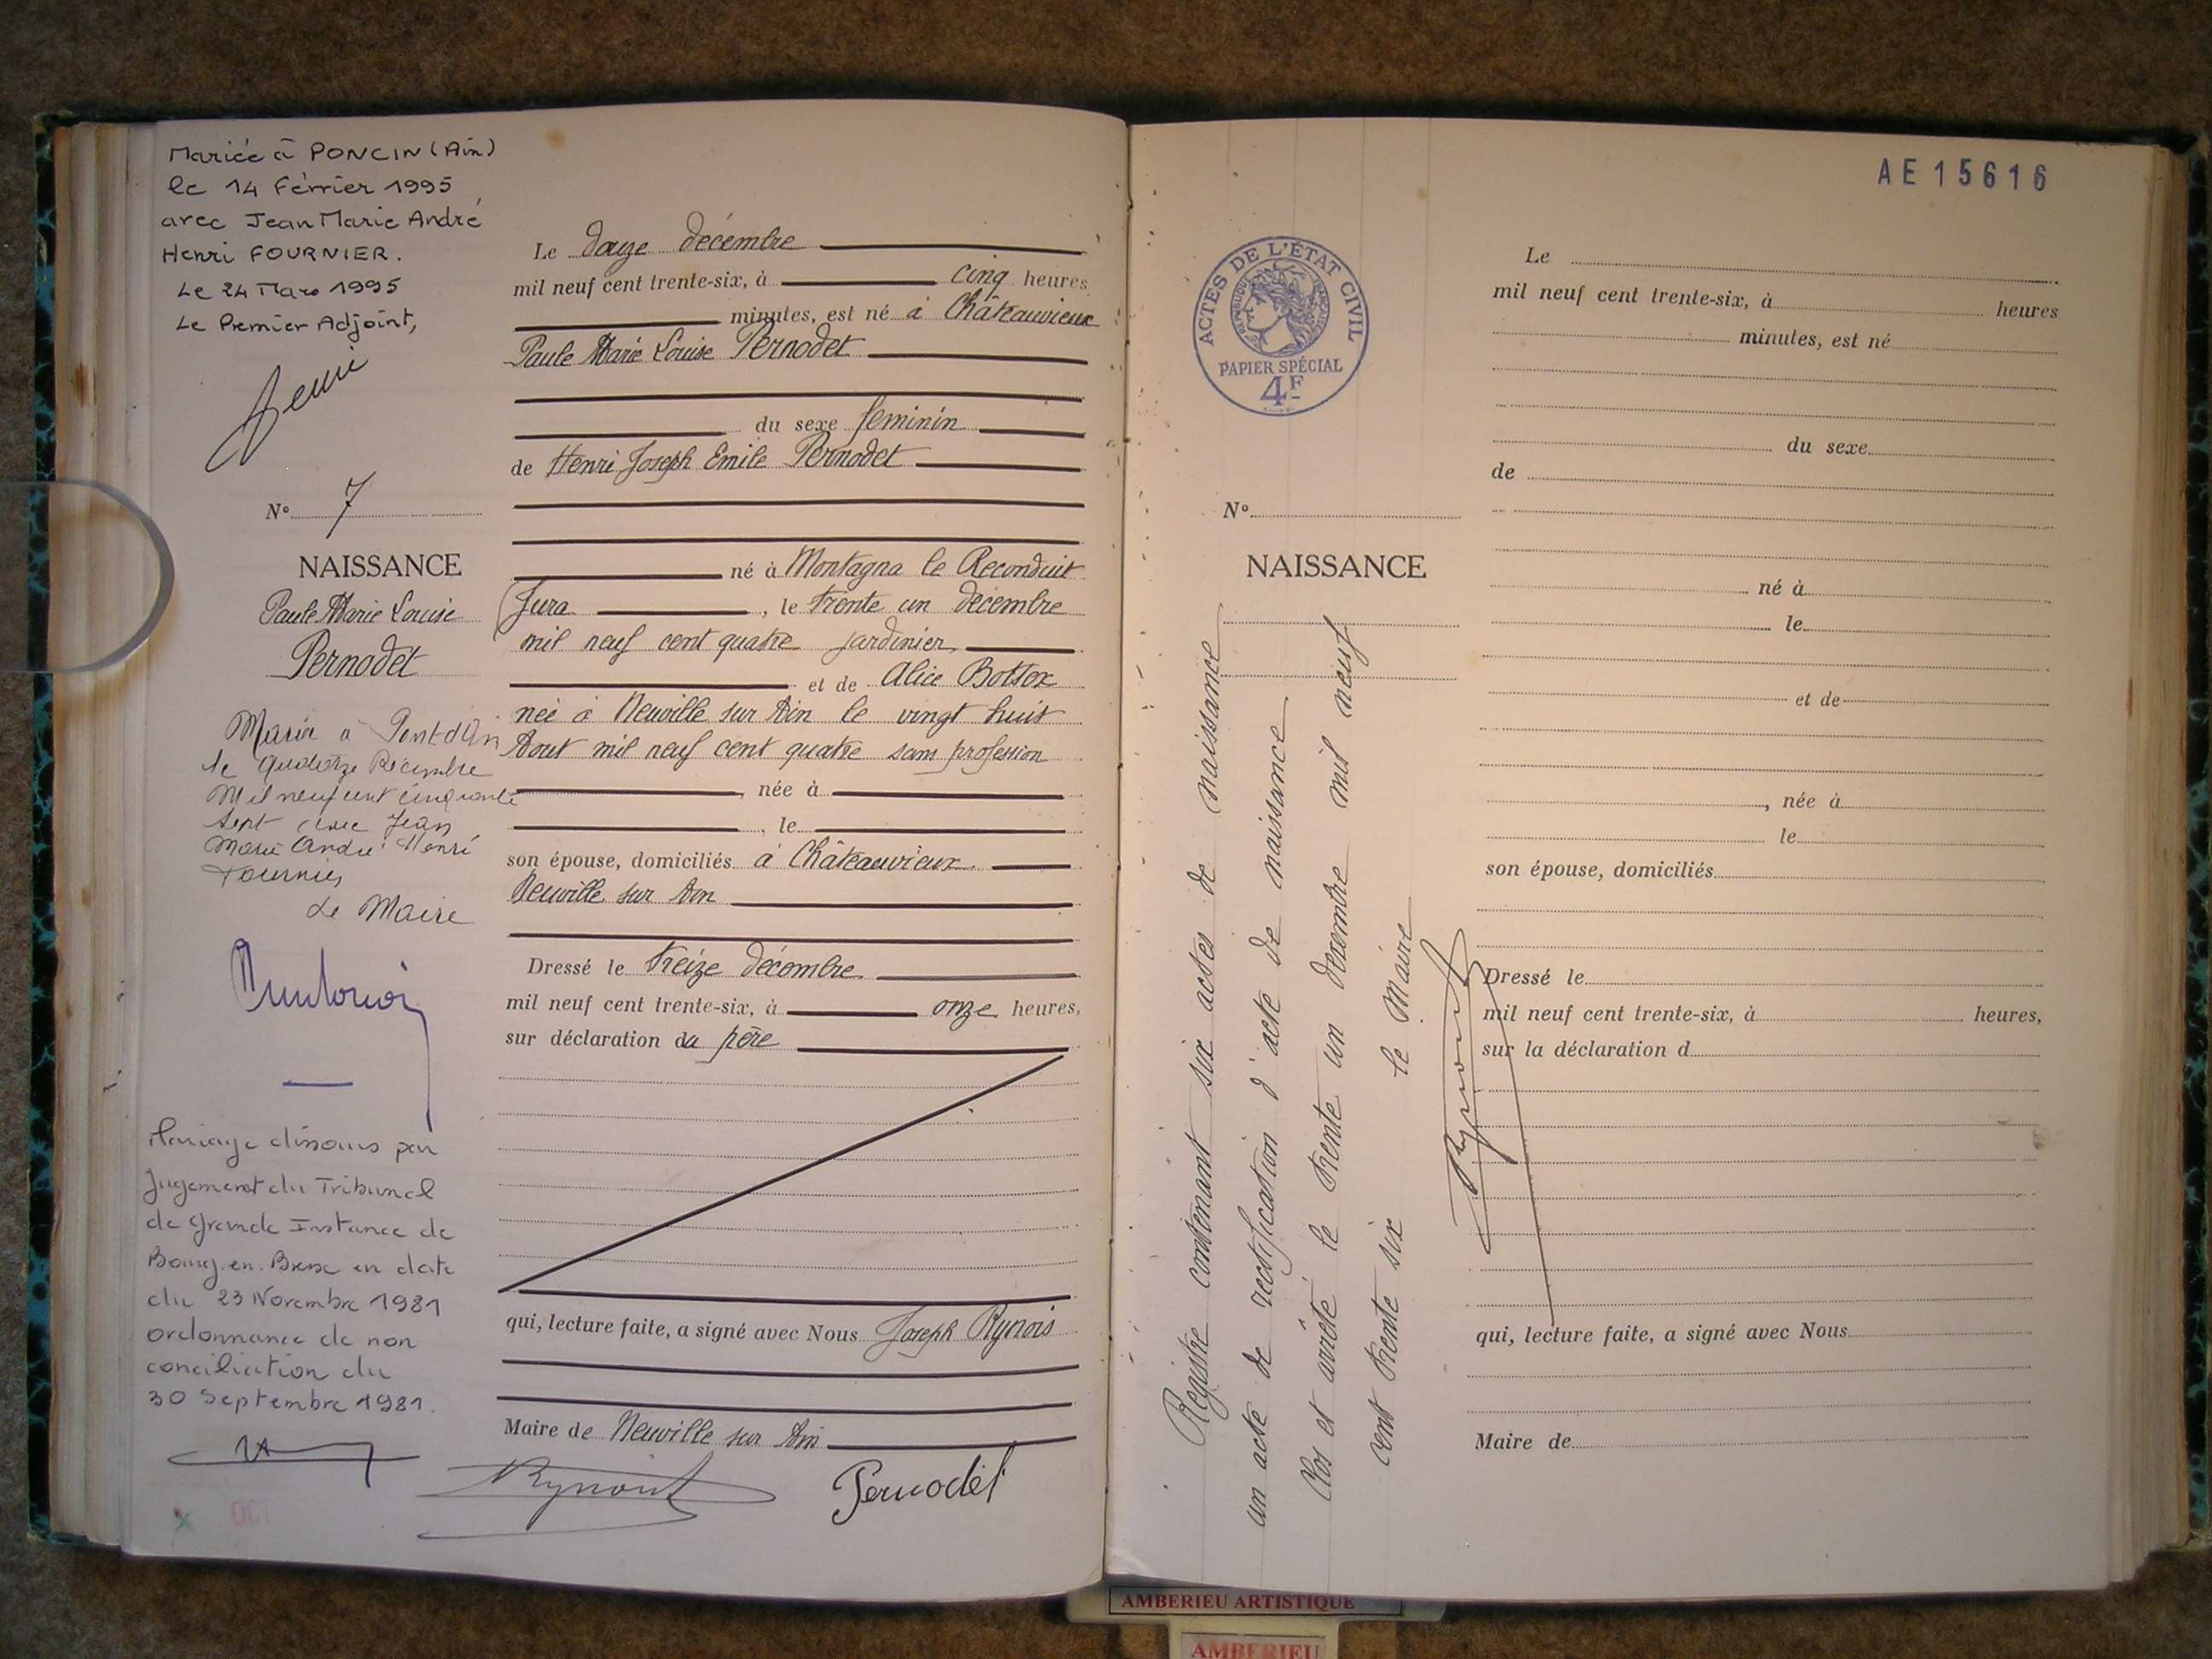 Mariée à PONCIN (Ain)
le 14 Février 1995
avec Jean Marie André
Henri FOURNIER.
Le 24 Mars 1995
Le Premier Adjoint,
N° 7
NAISSANCE
Paule Marie Louise
Pernodet
Mariée à Pont d'Ain
le quatorze Décembre
Mil neuf cent cinquante
sept avec Jean
Marie André Henri
Fournier
Le Maire
Mariage dissous par
Jugement du Tribunal
de Grande Instance de
Bourg.en.Bresse en date
du 23 Novembre 1981
ordonnance de non
conciliation du
30 Septembre 1981.
OCT
Le douze décembre
mil neuf cent trente-six, à cinq heures
minutes, est né à Châteauvieux
Paule Marie Louise Pernodet
du sexe féminin
de Henri Joseph Emile Pernodet
né à Montagna le Reconduit
(Jura , le trente un décembre
mil neuf cent quatre jardinier
et de Alice Bottex
née à Neuville sur Ain le vingt huit
Aout mil neuf cent quatre sans profession
, née à
, le
son épouse, domiciliés à Châteauvieux
Neuville sur Ain
Dressé le treize décembre
mil neuf cent trente-six, à onze heures,
sur déclaration du père
qui, lecture faite, a signé avec Nous Joseph Rynois
Maire de Neuville sur Ain
Pernodet
AE15616
ACTES DE L'ÉTAT CIVIL
REPUBLIQUE FRANÇAISE
PAPIER SPÉCIAL
4F
N°
NAISSANCE
Registre contenant six actes de naissance
un acte de rectification d'acte de naissance
Clos et arrêté le trente un décembre mil neuf
cent trente six le Maire
Le
mil neuf cent trente-six, à heures
minutes, est né
du sexe
de
né à
le
et de
, née à
le
son épouse, domiciliés
Dressé le
mil neuf cent trente-six, à heures,
sur la déclaration d
qui, lecture faite, a signé avec Nous
Maire de
AMBERIEU ARTISTIQUE
AMBERIEU